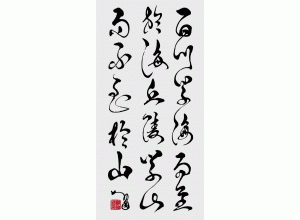 百川学海而至
於海丘陵学山
而不至於山